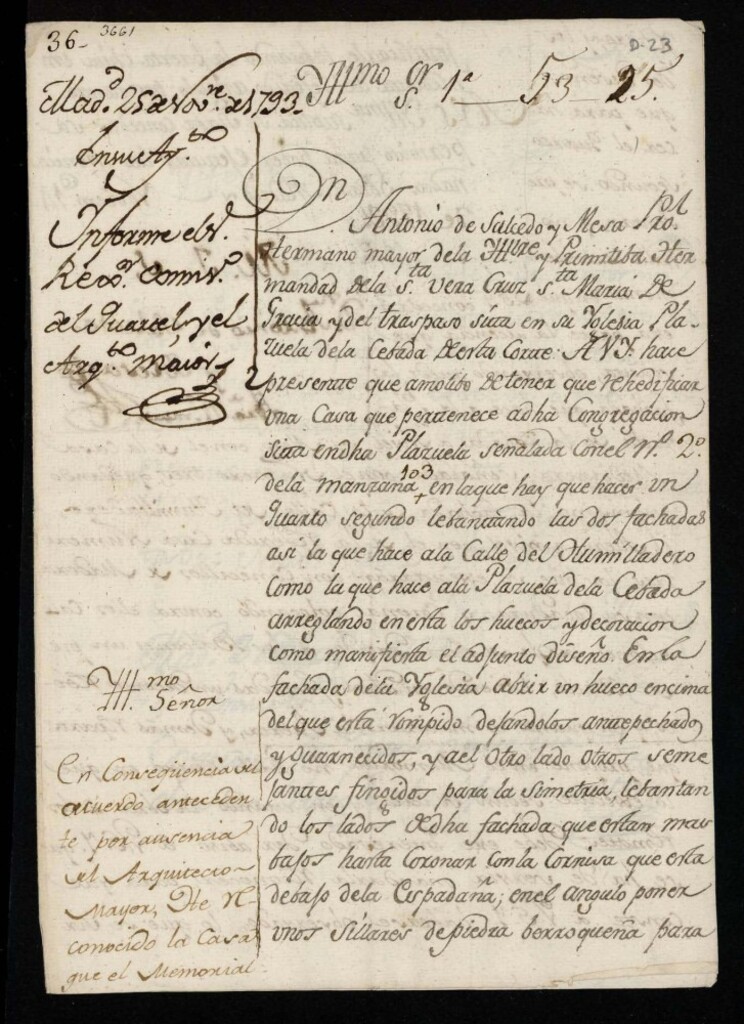 36- 3661
D-23
Mad.d 25 de Nov.re de 1793.
Yllmo Sr. 1a 53 25.
En su Ay.to
Ynforme el S.r
Rex.or Comis.o
del Quartel, y el
Arq.to Maior
Dn. Antonio de Salcedo y Mesa Pro.l
Hermano mayor de la Yltre y Primitiba Her
mandad de la S.ta Vera Cruz S.ta Maria De
Gracia y del traspaso sita en su Yglesia Pla-
zuela de la Cebada de esta Corte: A V.Y. hace
presente que amotibo de tener que rehedificar
una Casa que pertenece adha Congregacion
sita endha Plazuela señalada con el N.o 2.o
de la manzana 103 + en la que hay que hacer un
Quarto segundo lebantando las dos fachadas
asi la que hace ala Calle del Humilladero
como la que hace ala Plazuela de la Cebada
arreglando en esta los huecos y decoracion
como manifiesta el adjunto diseño. En la
fachada de la Yglesia abrir un hueco encima
del que está rompido dejandolos antepechados
y guarnecidos, y a el otro lado otros seme
jantes fingidos para la simetria, lebantan
do los lados de dha fachada que estan mas
bajos hasta Coronar con la Cornisa que esta
debajo de la Espadaña; en el angulo poner
unos sillares de piedra berroqueña para
Yll.mo
Señor
En Conseqüencia del
acuerdo anteceden
te por ausencia
del Arquitecto
Mayor, He re
conocido la Casa
que el Memorial